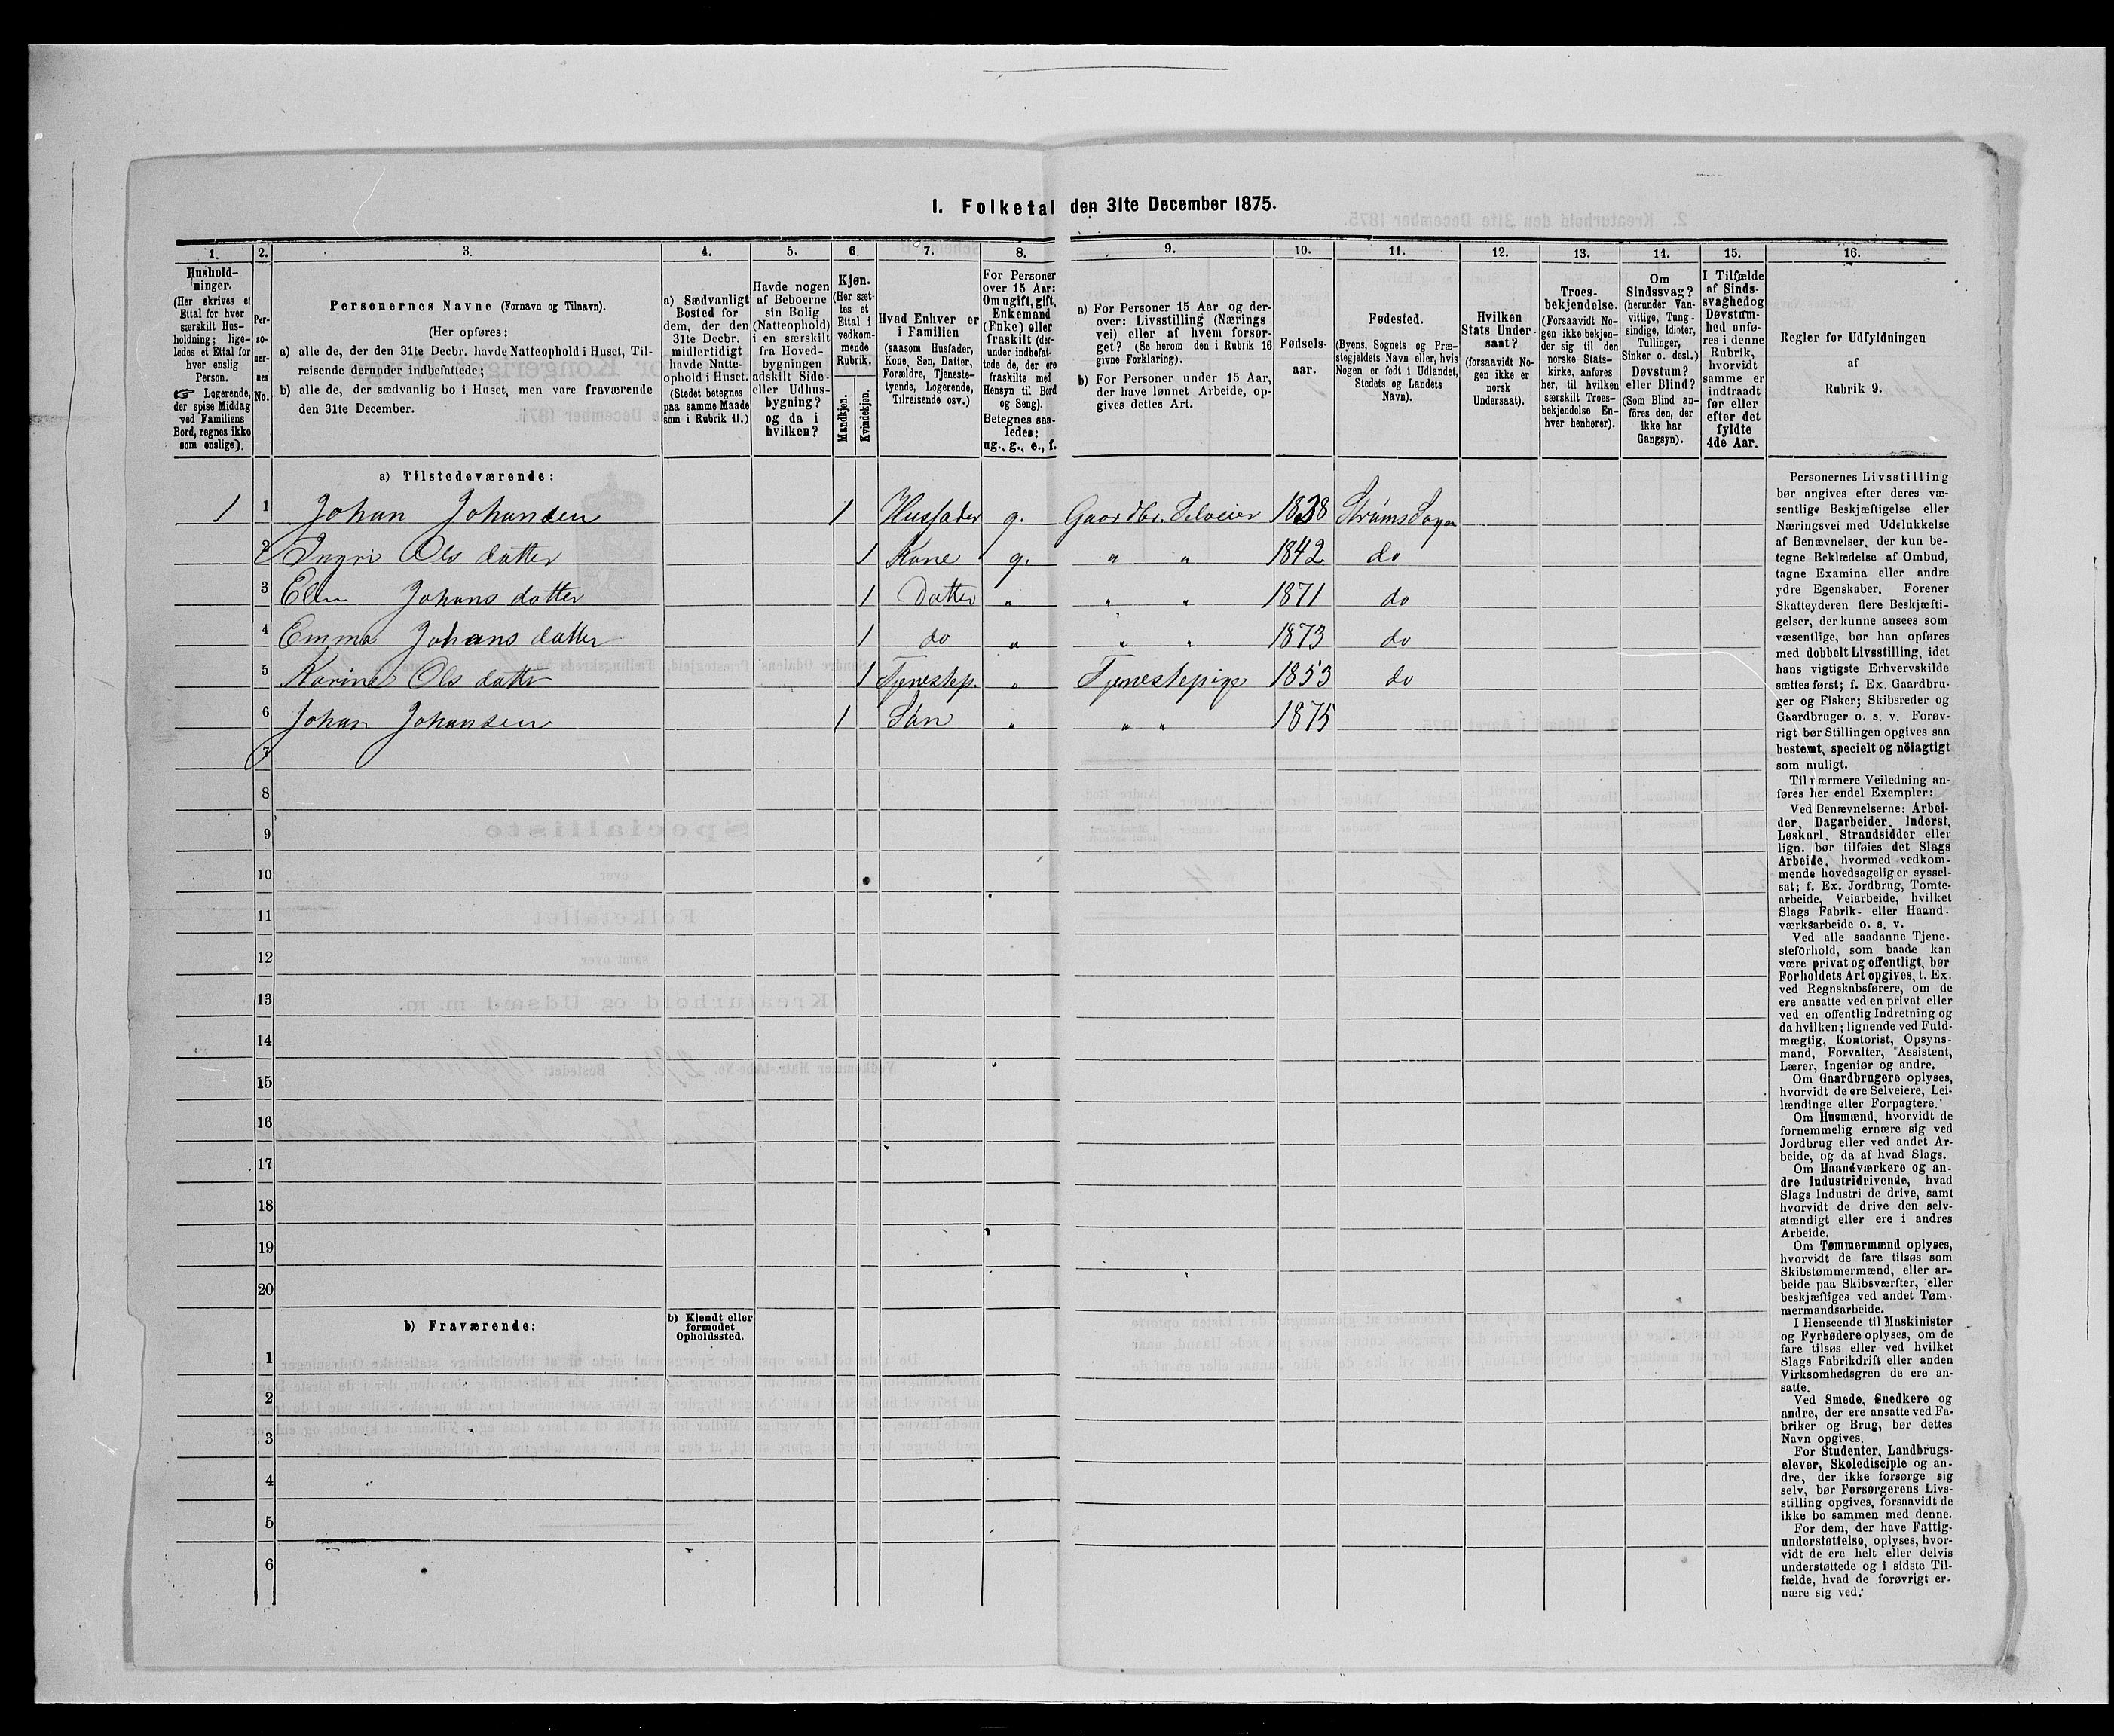 I. Folketal den 31te December 1875.
1. 2. 3. 4. 5. 6. 7. 8. 9. 10. 11. 12. 13. 14. 15. 16.
Hushold-
ninger.
(Her skrives et
Ettal for hver
særskilt Hus-
holdning; lige-
ledes et Ettal for
hver enslig
Person.
☞ Logerende,
der spise Middag
ved Familiens
Bord, regnes ikke
som enslige).
Per-
so-
ner-
nes
No.
Personernes Navne (Fornavn og Tilnavn).
(Her opføres:
a) alle de, der den 31te Decbr. havde Natteophold i Huset, Til-
reisende derunder indbefattede;
b) alle de, der sædvanlig bo i Huset, men vare fraværende
den 31te December.
a) Sædvanligt
Bosted for
dem, der den
31te Decbr.
midlertidigt
havde Natte-
ophold i Huset.
(Stedet betegnes
paa samme Maade
som i Rubrik 11.)
Havde nogen
af Beboerne
sin Bolig
(Natteophold)
i en særskilt
fra Hoved-
bygningen
adskilt Side-
eller Udhus-
bygning?
og da i
hvilken?
Kjøn.
(Her sæt-
tes et
Ettal i
vedkom-
mende
Rubrik.
Mandkjøn.
Kvindekjøn.
Hvad Enhver er
i Familien
(saasom Husfader,
Kone, Søn, Datter,
Forældre, Tjeneste-
tyende, Logerende,
Tilreisende osv.)
For Personer
over 15 Aar:
Om ugift, gift,
Enkemand
(Enke) eller
fraskilt (der-
under indbefat-
tede de, der ere
fraskilte med
Hensyn til Bord
og Seng).
Betegnes saa-
ledes:
ug., g., e., f.
a) For Personer 15 Aar og der-
over: Livsstilling (Nærings
vei) eller af hvem forsør-
get? (Se herom den i Rubrik 16
givne Forklaring).
b) For Personer under 15 Aar,
der have lønnet Arbeide, op-
gives dettes Art.
Fødsels-
aar.
Fødested.
(Byens, Sognets og Præ-
stegjeldets Navn eller, hvis
Nogen er født i Udlandet,
Stedets og Landets
Navn).
Hvilken
Stats Under-
saat?
(forsaavidt No-
gen ikke er
norsk
Undersaat).
Troes-
bekjendelse.
(Forsaavidt No-
gen ikke bekjen-
der sig til den
norske Stats-
kirke, anføres
her, til hvilken
særskilt Troes-
bekjendelse En-
hver henhører).
Om
Sindssvag?
(herunder Van-
vittige, Tung-
sindige, Idioter,
Tullinger,
Sinker o. desl.)
Døvstum?
eller Blind?
(Som Blind an-
føres den, der
ikke har
Gangsyn).
I Tilfælde
af Sinds-
svaghed og
Døvstum-
hed anfø-
res i denne
Rubrik,
hvorvidt
samme er
indtraadt
før eller
efter det
fyldte
4de Aar.
Regler for Udfyldningen
af
Rubrik 9.
a) Tilstedeværende:
1 1 Johan Johansen 1 Husfader g. Gaardbr. Selveier 1838 Strøms Sogn
2 Ingri Ols datter 1 Kone g. " " 1842 do
3 Elen Johans datter 1 Datter " " " 1871 do
4 Emma Johans datter 1 do " " " 1873 do
5 Karine Ols datter 1 Tjenestep. " Tjenestepige 1853 do
6 Johan Johansen 1 Søn " " " 1875
7
8
9
10
11
12
13
14
15
16
17
18
19
20
b) Fraværende:
b) Kjendt eller
formodet
Opholdssted.
1
2
3
4
5
6
Personernes Livsstilling
bør angives efter deres væ-
sentlige Beskjæftigelse eller
Næringsvei med Udelukkelse
af Benævnelser, der kun be-
tegne Beklædelse af Ombud,
tagne Examina eller andre
ydre Egenskaber. Forener
Skatteyderen flere Beskjæfti-
gelser, der kunne ansees som
væsentlige, bør han opføres
med dobbelt Livsstilling, idet
hans vigtigste Erhvervskilde
sættes først; f. Ex. Gaardbru-
ger og Fisker; Skibsreder og
Gaardbruger o. s. v. Forøv-
rigt bør Stillingen opgives saa
bestemt, specielt og nöiagtigt
som muligt.
Til nærmere Veiledning an-
føres her endel Exempler:
Ved Benævnelserne: Arbei-
der, Dagarbeider, Inderst,
Løskarl, Strandsidder eller
lign. bør tilføies det Slags
Arbeide, hvormed vedkom-
mende hovedsagelig er syssel-
sat; f. Ex. Jordbrug, Tomte-
arbeide, Veiarbeide, hvilket
Slags Fabrik- eller Haand-
værksarbeide o. s. v.
Ved alle saadanne Tjene-
steforhold, som baade kan
være privat og offentligt, bør
Forholdets Art opgives, t. Ex.
ved Regnskabsførere, om de
ere ansatte ved en privat eller
ved en offentlig Indretning og
da hvilken; lignende ved Fuld-
mægtig, Kontorist, Opsyns-
mand, Forvalter, Assistent,
Lærer, Ingeniør og andre.
Om Gaardbrugere oplyses,
hvorvidt de ere Selveiere, Lei-
lændinge eller Forpagtere.
Om Husmænd, hvorvidt de
fornemmelig ernære sig ved
Jordbrug eller ved andet Ar-
beide, og da af hvad Slags.
Om Haandværkere og an-
dre Industridrivende, hvad
Slags Industri de drive, samt
hvorvidt de drive den selv-
stændigt eller ere i andres
Arbeide.
Om Tømmermænd oplyses,
hvorvidt de fare tilsøs som
Skibstømmermænd, eller ar-
beide paa Skibsværfter, eller
beskjæftiges ved andet Tøm-
mermandsarbeide.
I Henseende til Maskinister
og Fyrbødere oplyses, om de
fare tilsøs eller ved hvilket
Slags Fabrikdrift eller anden
Virksomhedsgren de ere an-
satte.
Ved Smede, Snedkere og
andre, der ere ansatte ved Fa-
briker og Brug, bør dettes
Navn opgives.
For Studenter, Landbrugs-
elever, Skoledisciple og an-
dre, der ikke forsørge sig
selv, bør Forsørgerens Livs-
stilling opgives, forsaavidt de
ikke bo sammen med denne.
For dem, der have Fattig-
understøttelse, oplyses, hvor-
vidt de ere helt eller delvis
understøttede og i sidste Til-
fælde, hvad de forøvrigt er-
nære sig ved.